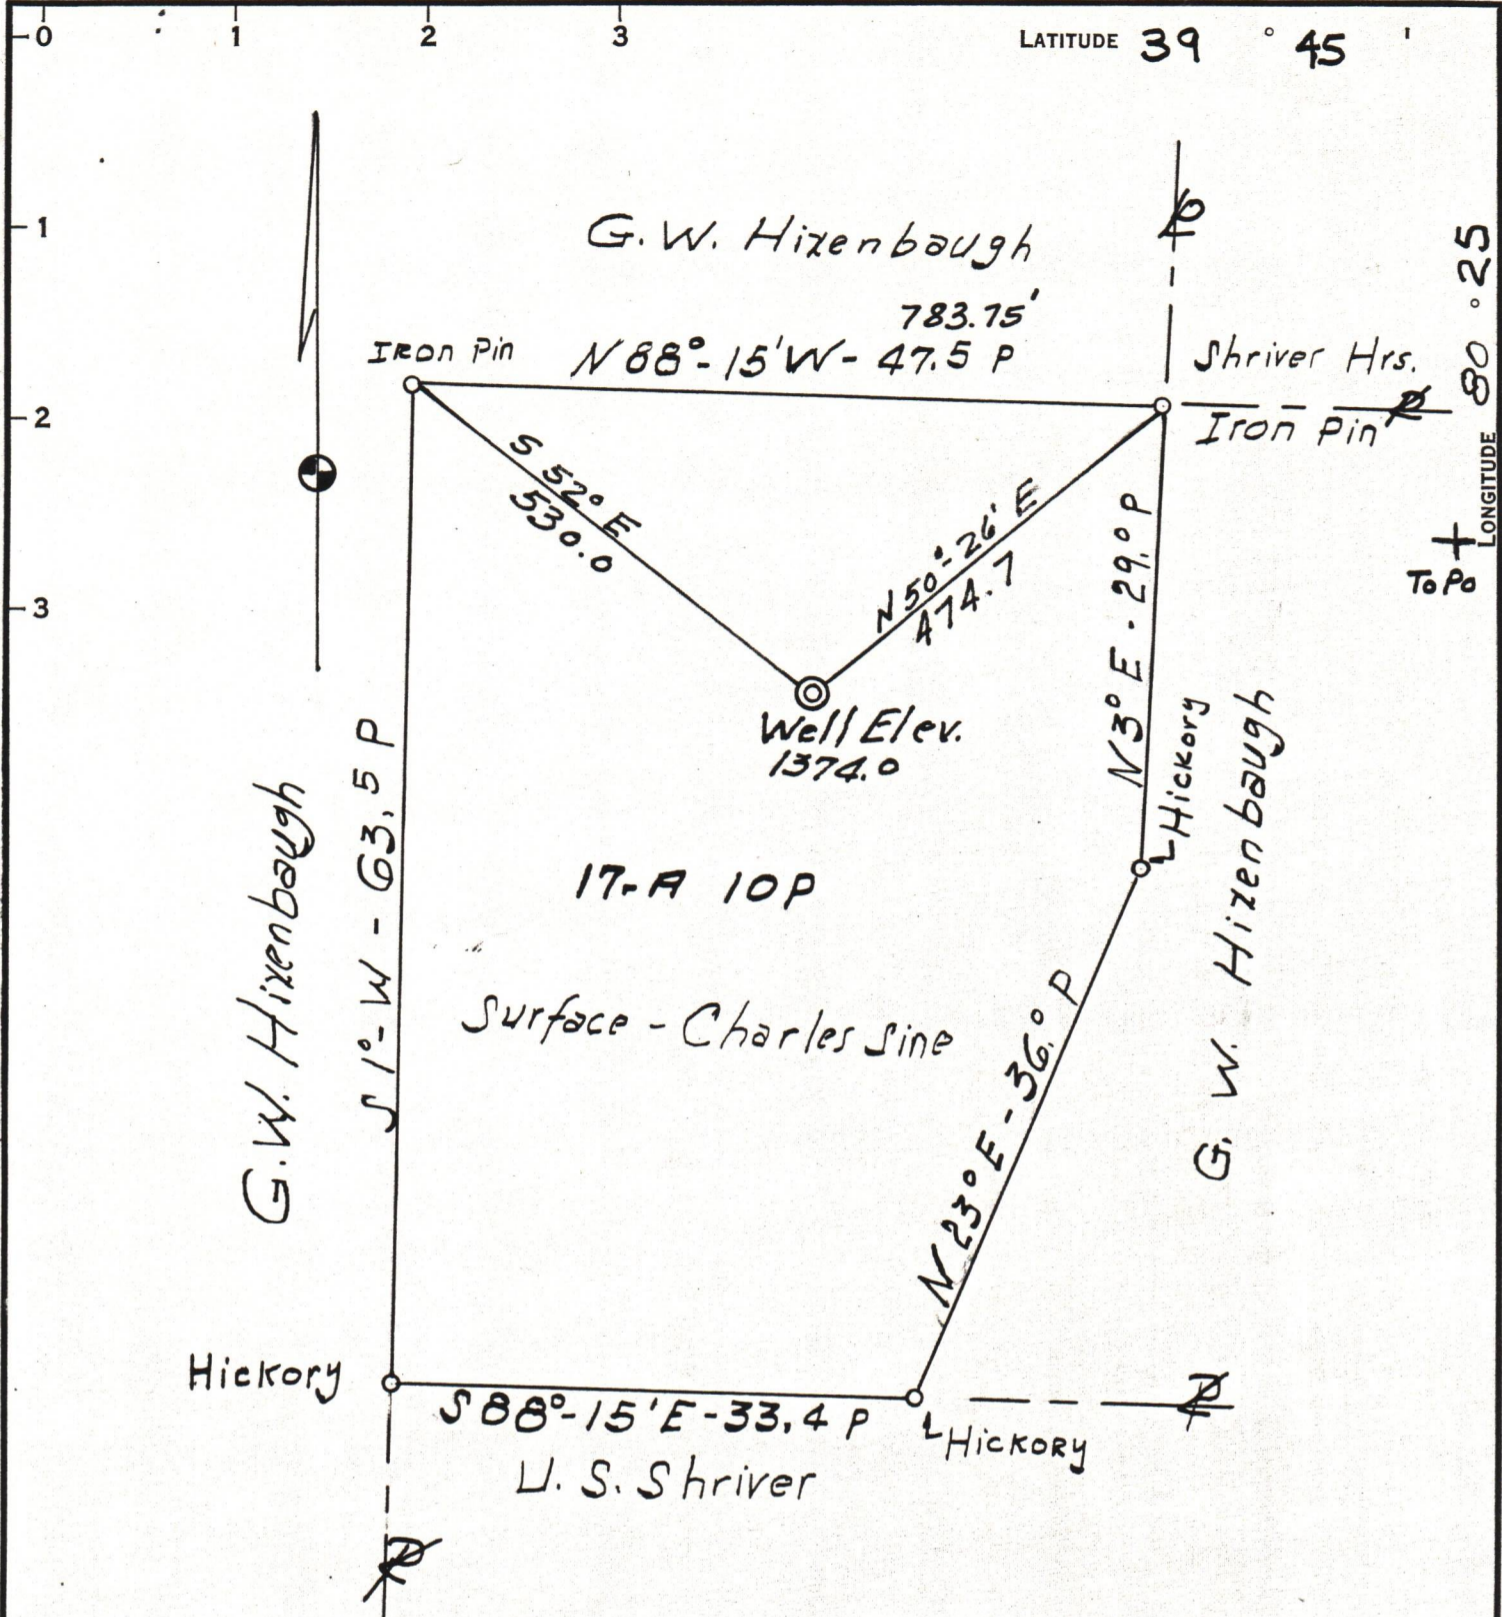 0 1 2 3
LATITUDE 39 ° 45 '
LONGITUDE 80 ° 25
1
2
3
G.W. Hixenbaugh
783.75'
N 88°-15'W - 47.5 P
Iron Pin
Shriver Hrs.
Iron Pin
S 52° E
530.0
N 50°-26' E
474.7
N 3° E - 29.0 P
Topo
Well Elev.
1374.0
Hickory
G. W. Hixenbaugh
G.W. Hixenbaugh
S 1°-W - 63.5 P
17-A 10P
Surface - Charles Sine
N 23° E - 36.0 P
Hickory
S 88°-15'E - 33.4 P
Hickory
U.S. Shriver